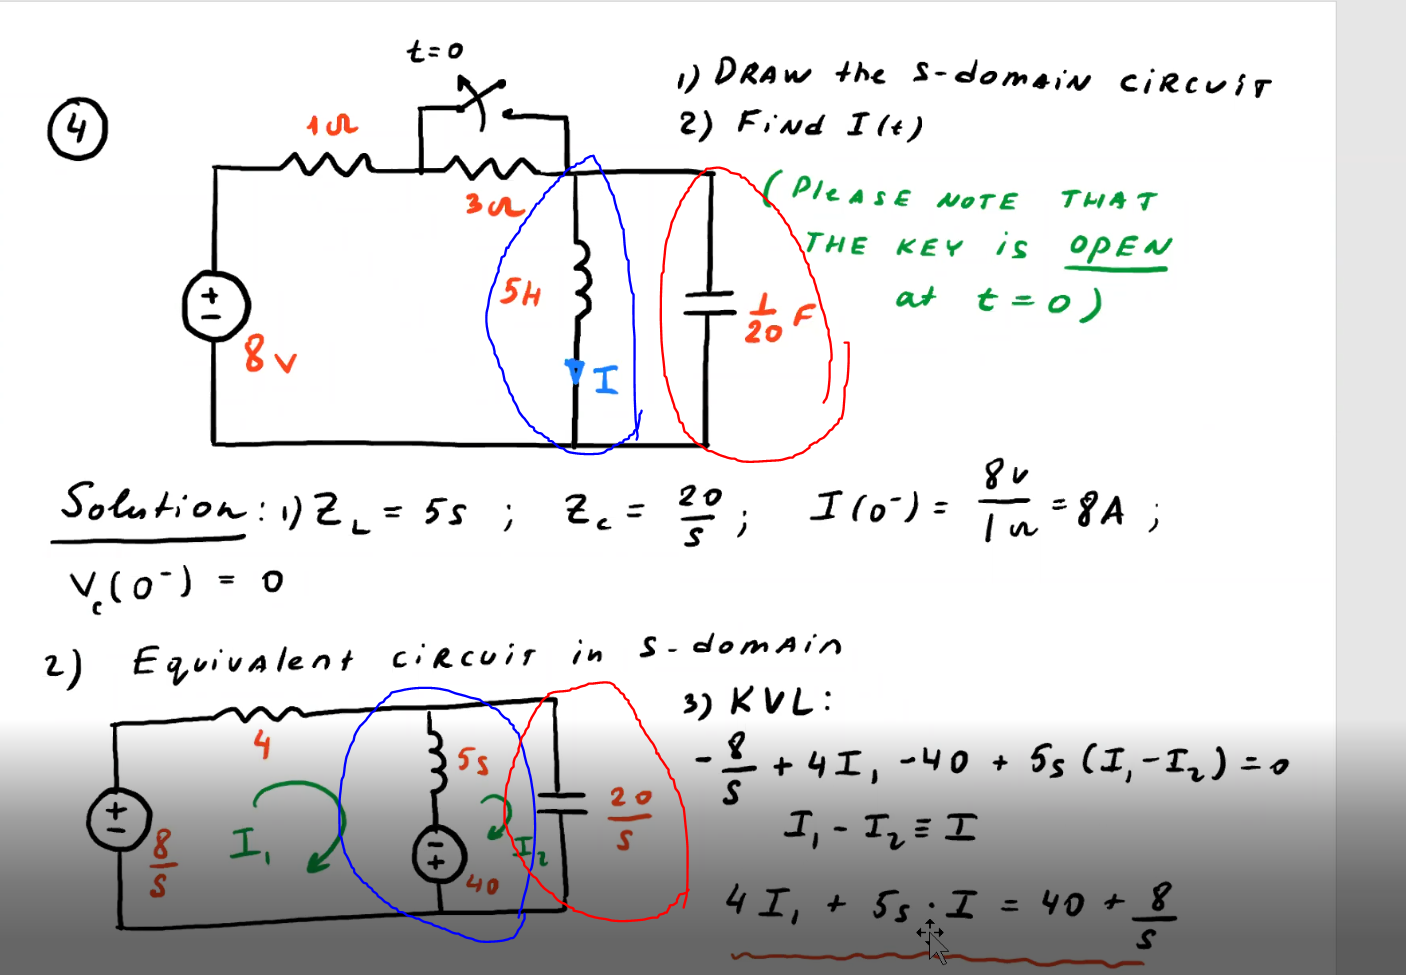 t=0
④
1Ω
3Ω
5H
I
1/20 F
8V
1) DRAW the s-domAiN CiRCuiT
2) FiNd I(t)
(PleASE NOTE THAT
THE KEY is OPEN
at t=0)
Solution: 1) Z_L = 5s ; Z_c = 20/s ; I(0⁻) = 8v/1Ω = 8A ;
V_c(0⁻) = 0
2) EquivAlent ciRcuit in s-domAin
4
5s
8/s
I₁
I₂
40
20/s
3) KVL:
-8/s + 4I₁ -40 + 5s (I₁-I₂) = 0
I₁ - I₂ ≡ I
4I₁ + 5s · I = 40 + 8/s